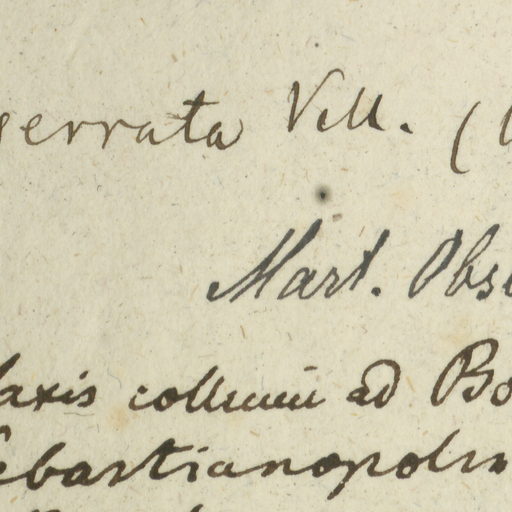 serrata Vell. (
Mart. Obs
laxis collium ad Bo
ebastianopolin